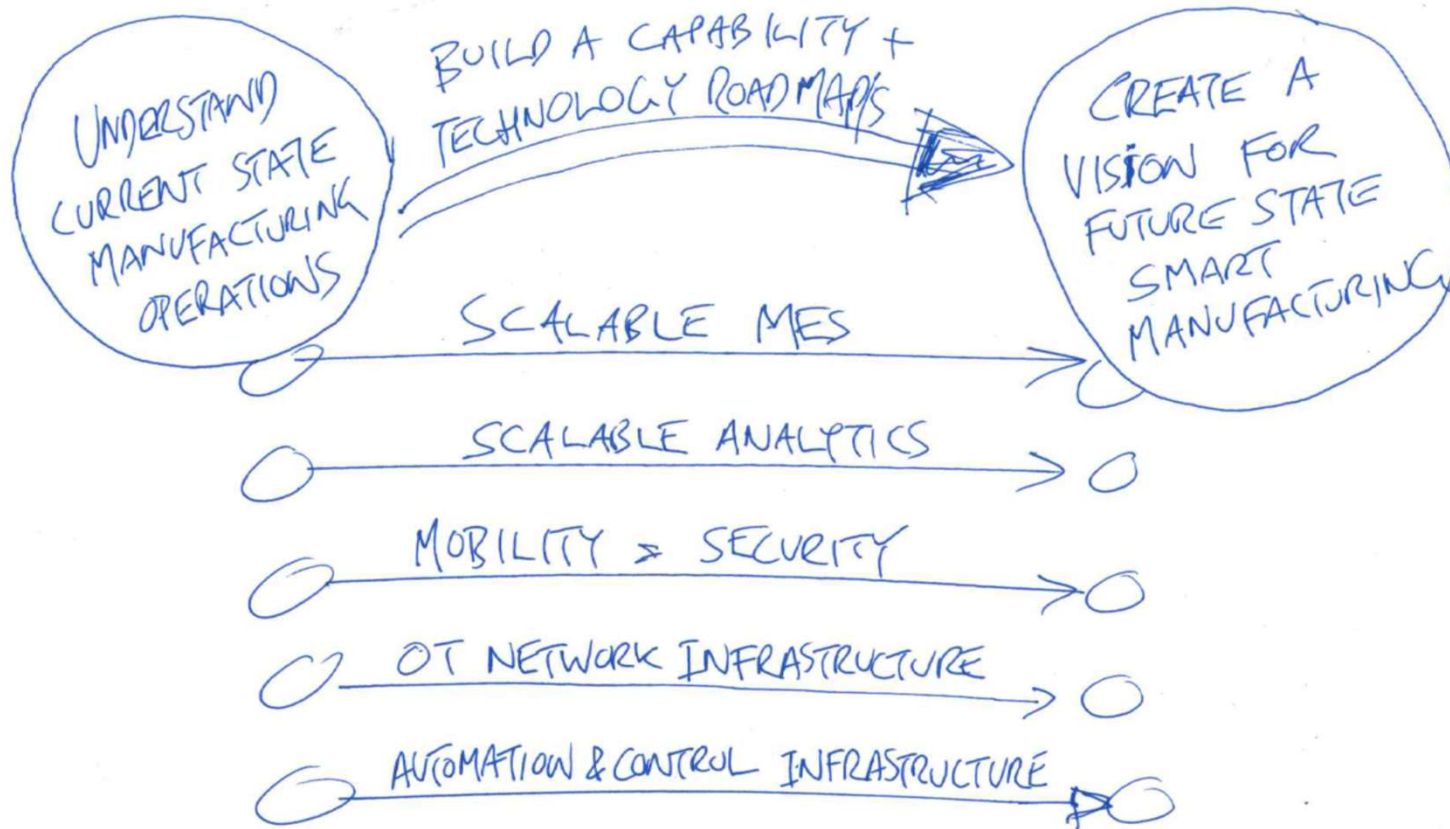 UNDERSTAND
CURRENT STATE
MANUFACTURING
OPERATIONS
BUILD A CAPABILITY +
TECHNOLOGY ROADMAPS
CREATE A
VISION FOR
FUTURE STATE
SMART
MANUFACTURING
SCALABLE MES
SCALABLE ANALYTICS
MOBILITY > SECURITY
OT NETWORK INFRASTRUCTURE
AUTOMATION & CONTROL INFRASTRUCTURE